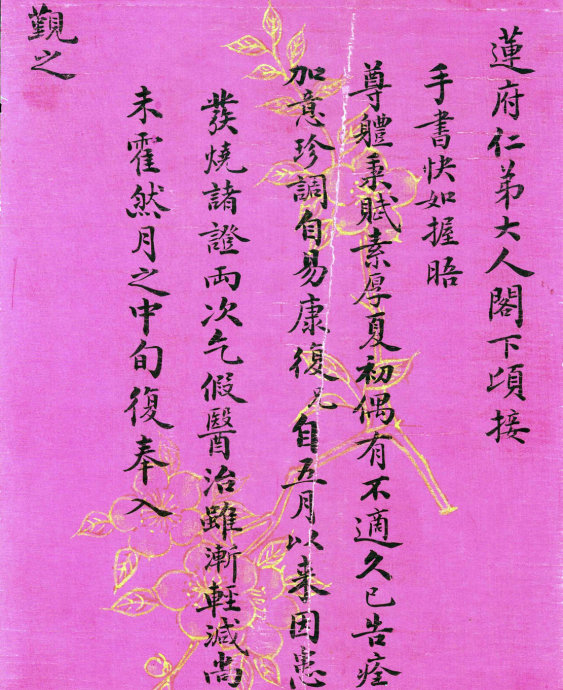 蓮府仁弟大人閣下頃接
手書快如握晤
尊體秉賦素厚夏初偶有不適久已告痊
加意珍調自易康復兄自五月以来因患
發燒諸證兩次乞假醫治雖漸輕減尚
未霍然月之中旬復奉入
覲之